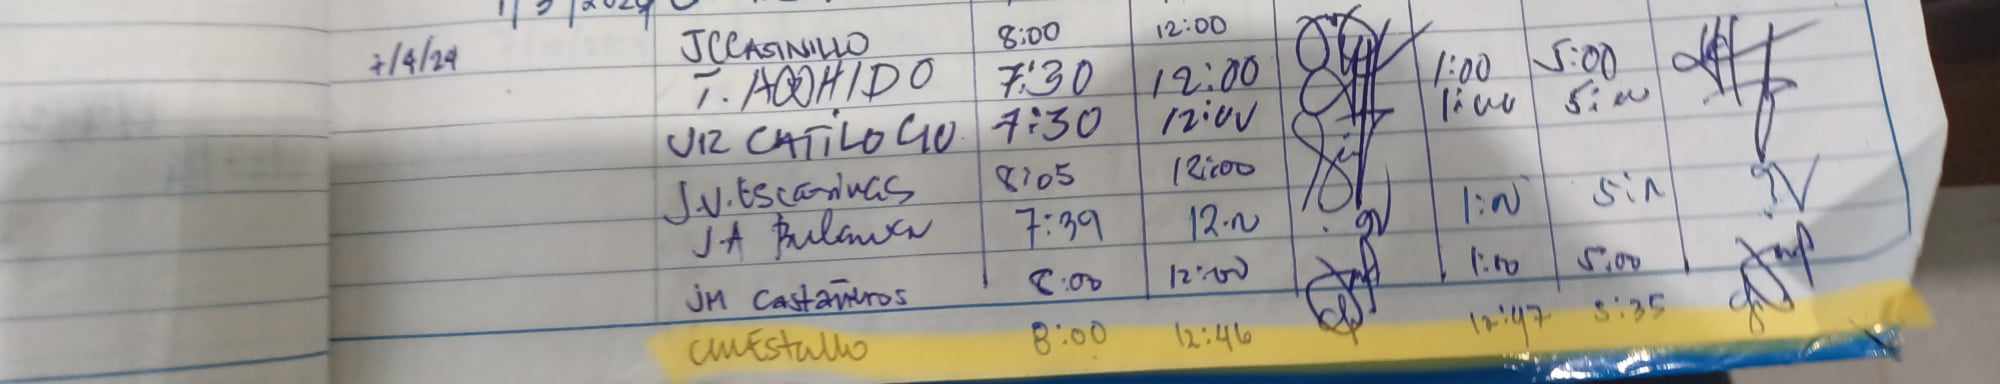 7/4/24 JCCASINILLO 8:00 12:00
T. AQOHIDO 7:30 12:00 1:00 5:00
JR CATILOGO 7:30 12:00 1:00 5:00
J.V. Escarinas 8:05 12:00
J.A 7:39 12:00 1:00 5:00
JM Castañeros 8:00 12:00 1:00 5:00
CMEstallo 8:00 12:46 12:47 5:35